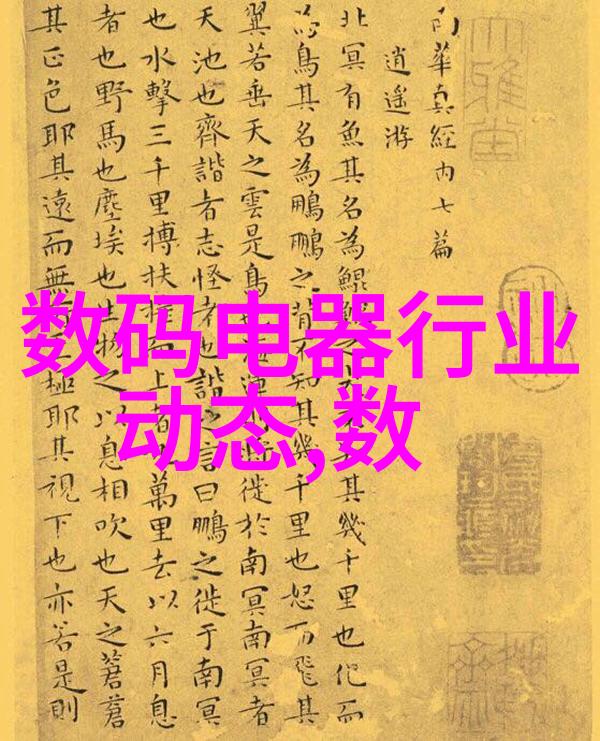 南華真經內七篇
逍遙游
北冥有魚其名為鯤鯤之大不知其幾千里也化而
為鳥其名為鵬鵬之背不知其幾千里也怒而飛其
翼若垂天之雲是鳥也海運則將徙於南冥南冥者
天池也齊諧者志怪者也諧之言曰鵬之徙于南冥
也水擊三千里搏扶搖而上者九萬里去以六月息
者也野馬也塵埃也生物之以息相吹也天之蒼蒼
其正色耶其遠而無所至極耶其視下也亦若是則
大雅堂
数码电器行业
动态,数